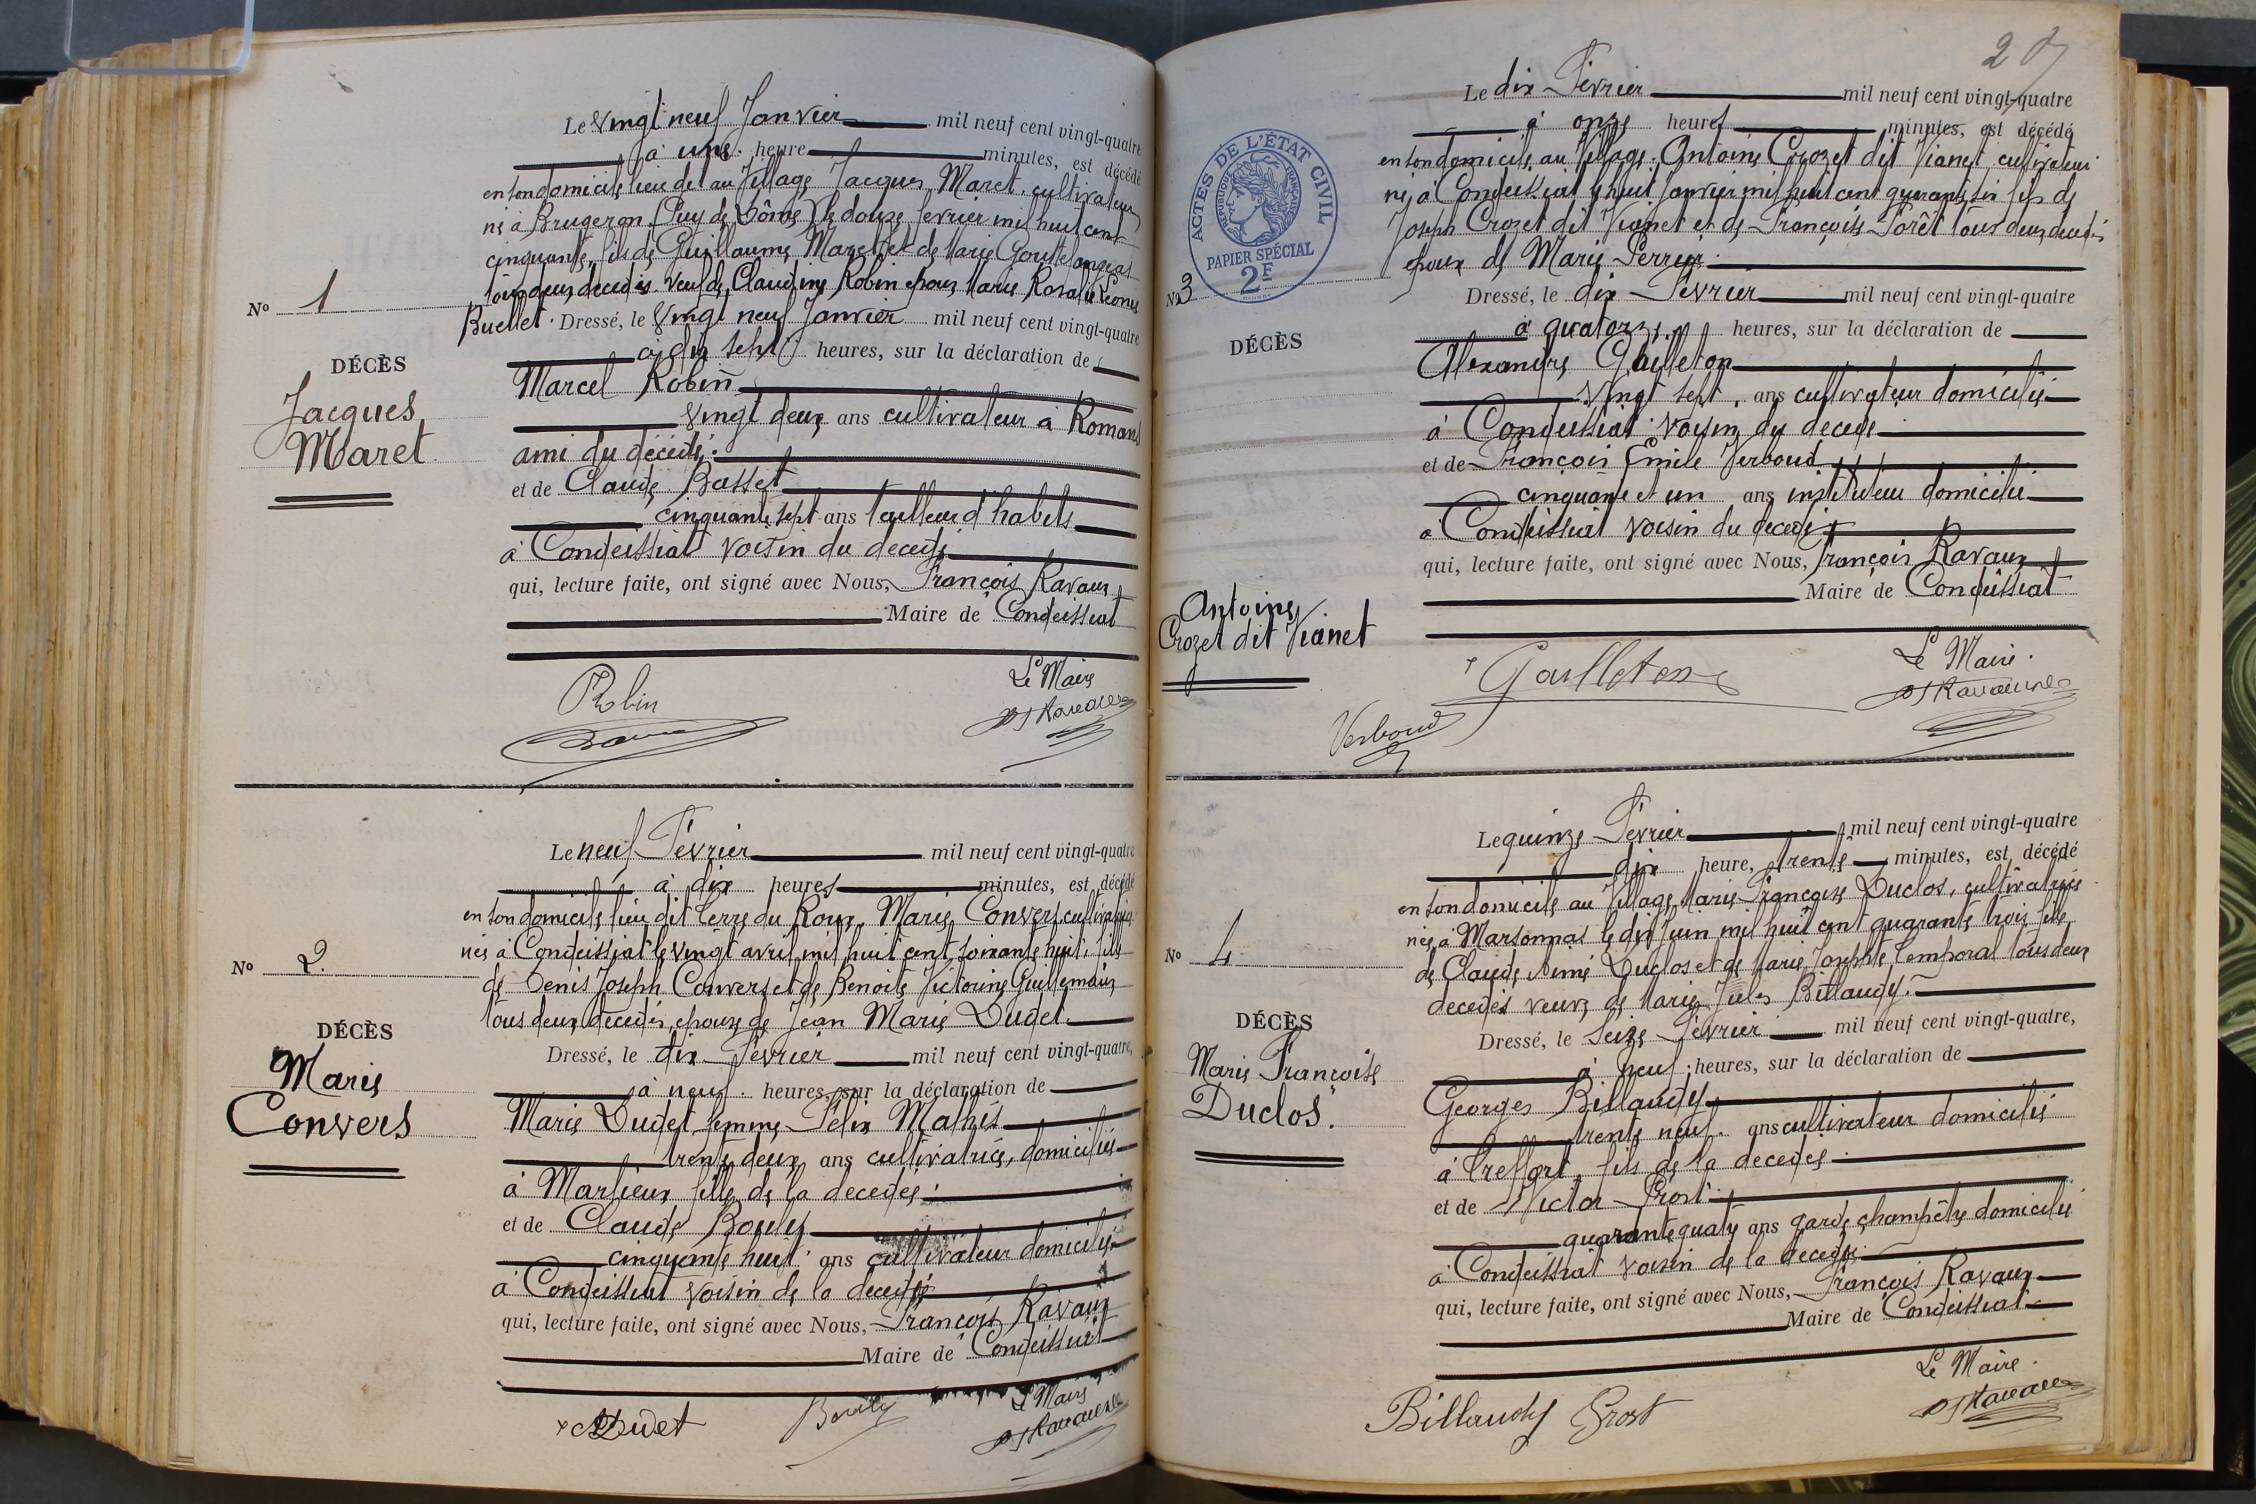 Le vingt neuf Janvier mil neuf cent vingt-quatre
à une heure minutes, est décédé
en son domicile lieu dit au Village Jacques Maret, cultivateur
né à Brugeron (Puy de Dôme) le douze fevrier mil huit cent
cinquante, fils de Guillaume Maret et de Marie
tous deux décédés. Veuf de Claudine Robin époux Marie Rosalie Leonie
Buchet. Dressé, le vingt neuf Janvier mil neuf cent vingt-quatre
à dix sept heures, sur la déclaration de
Marcel Robin
vingt deux ans cultivateur à Romans
ami du décédé.
et de Claude Basset
cinquante sept ans tailleur d'habits
à Condeissiat voisin du decedé
qui, lecture faite, ont signé avec Nous, François Ravaux
Maire de Condeissiat
No 1
DÉCÈS
Jacques
Maret
Robin
Le Maire
Le neuf Février mil neuf cent vingt-quatre
à dix heures minutes, est décédé
en son domicile lieu dit Terre du Roux, Marie Convers cultivatrice
née à Condeissiat le vingt avril mil huit cent soixante huit, fille
de Denis Joseph Convers et de Benoite Victorine Guillemain
tous deux décédés, epouse de Jean Marie Dudet
Dressé, le dix Février mil neuf cent vingt-quatre,
à neuf heures, sur la déclaration de
Marie Dudet femme Félix Mathis
trente deux ans cultivatrice, domiciliée
à Marlieux fille de la decedée.
et de Claude Bouly
cinquante huit ans cultivateur domicilié
à Condeissiat voisin de la decedée
qui, lecture faite, ont signé avec Nous, François Ravaux
Maire de Condeissiat
No 2.
DÉCÈS
Marie
Convers
Dudet
Bouly
Le Maire
Le dix Février mil neuf cent vingt-quatre
à onze heures minutes, est décédé
en son domicile au Village. Antoine Crozet dit Vianet cultivateur
né à Condeissiat le huit Janvier mil huit cent quarante six fils de
Joseph Crozet dit Vianet et de Françoise Forêt tous deux decedés
epoux de Marie Perrier.
Dressé, le dix Février mil neuf cent vingt-quatre
à quatorze heures, sur la déclaration de
Alexandre Gailleton
vingt sept ans cultivateur domicilié
à Condeissiat voisin du decedé
et de François Emile Verboud
cinquante et un ans instituteur domicilié
à Condeissiat voisin du decedé
qui, lecture faite, ont signé avec Nous, François Ravaux
Maire de Condeissiat
ACTES DE L'ÉTAT CIVIL
RÉPUBLIQUE FRANÇAISE
PAPIER SPÉCIAL
2F
No 3
DÉCÈS
Antoine
Crozet dit Vianet
Gailleton
Verboud
Le Maire.
Le quinze Février mil neuf cent vingt-quatre
dix heure, trente minutes, est décédé
en son domicile au Village, Marie Françoise Duclos, cultivatrice
née à Marsonnas le dix Juin mil huit cent quarante trois fille
de Claude Aimé Duclos et de Marie Josephte Temporal tous deux
decedés veuve de Marie Jules Billaudy.
Dressé, le Seize Février mil neuf cent vingt-quatre,
à neuf heures, sur la déclaration de
Georges Billaudy
trente neuf ans cultivateur domicilié
à Treffort, fils de la decedée.
et de Victor Prost
quarante quatre ans garde champêtre domicilié
à Condeissiat voisin de la decedée.
qui, lecture faite, ont signé avec Nous, François Ravaux
Maire de Condeissiat
No 4
DÉCÈS
Marie Françoise
Duclos.
Billaudy Prost
Le Maire.